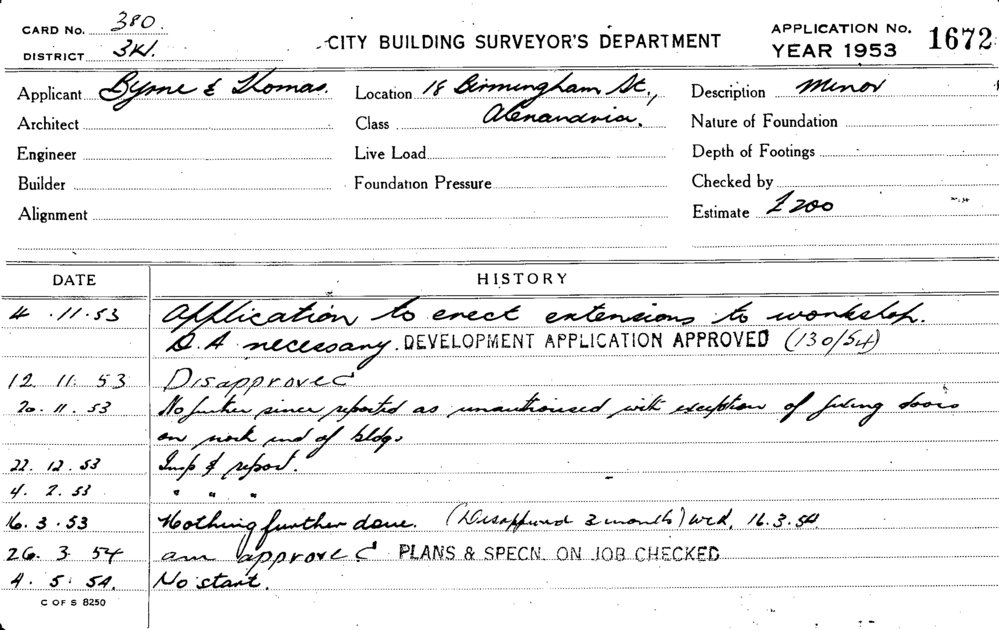 CARD No. 380.
DISTRICT 3W.
CITY BUILDING SURVEYOR'S DEPARTMENT
APPLICATION No. 1672
YEAR 1953
Applicant Byrne & Thomas. Location 18 Birmingham St., Description Minor
Architect Class Alexandria. Nature of Foundation
Engineer Live Load Depth of Footings
Builder Foundation Pressure Checked by
Alignment Estimate £200
DATE HISTORY
4.11.53 Application to erect extensions to workshop.
D.A necessary. DEVELOPMENT APPLICATION APPROVED (130/54)
12.11.53 Disapproved
20.11.53 No further since reported as unauthorised with exception of doors
on north end of bldg.
22.12.53 Insp & report.
4.2.53 " " "
16.3.53 Nothing further done. (Disapproved 3 months) 16.3.54
26.3.54 am approved PLANS & SPECN. ON JOB CHECKED
4.5.54. No start.
C OF S 8250